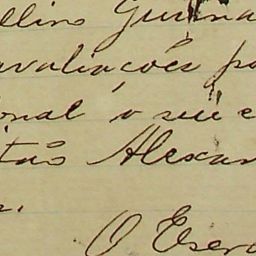 llino Guima
avaliações po
onal o seu c
itaõ Alexan
O Escr